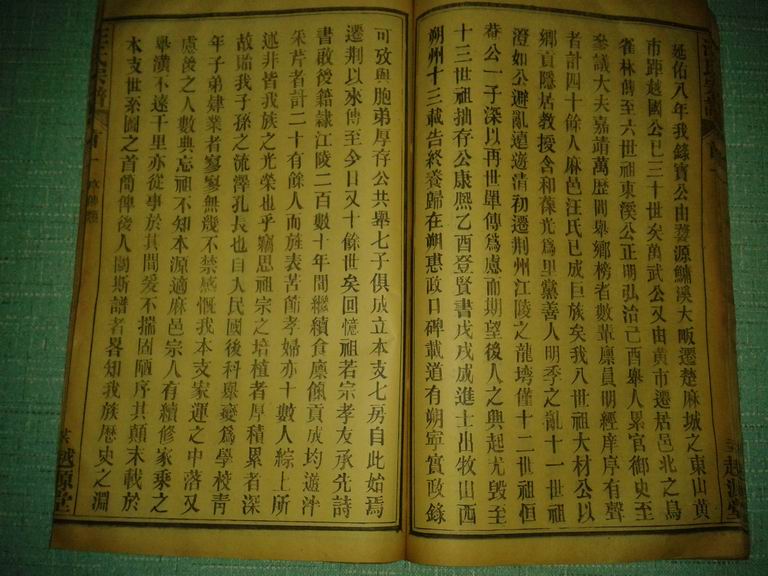 延佑八年我錄寶公由婺源鱅溪大畈遷楚麻城之東山黃
市距越國公已三十世矣萬武公又由黃市遷居邑北之鳥
雀林傳至六世祖東溪公正明弘治己酉舉人累官御史至
參議大夫嘉靖萬歷間舉鄉榜者數輩廩員明經庠序有聲
者計四十餘人麻邑汪氏已成巨族矣我八世祖大材公以
鄉貢隱居教授含和葆光為里黨善人明季之亂十一世祖
澄如公避亂遠遊清初遷荆州江陵之龍塆僅十二世祖但
菴公一子深以再世單傳爲慮而期望後人之興起尤毀至
十三世祖拙存公康熙乙酉登賢書戊戌成進士出牧山西
朔州十三載告終養歸在朔惠政口碑載道有朔寧實政錄
可攷與胞弟厚存公共舉七子俱成立本支七房自此始焉
遷荆以來傳至今日又十餘世矣回憶祖若宗孝友承先詩
書啟後籍隸江陵二百數十年間繼續食廪餼貢成均遊泮
朱芹者計二十有餘人而旌表苦節孝婦亦十數人綜上所
述非皆我族之光榮也乎竊思祖宗之培植者厚積累者深
故貽我子孫之流澤孔長也自人民國後科舉廢爲學校青
年子弟肄業者寥寥無幾不禁感慨我本支家運之中落又
慮後之人數典忘祖不知本源適麻邑宗人有續修家乘之
舉潢不遠千里亦從事於其間爰不揣固陋序其顛末載於
本支世系圖之首簡俾後人閱斯譜者畧知我族歷史之淵
汪氏宗譜
首一
越源堂